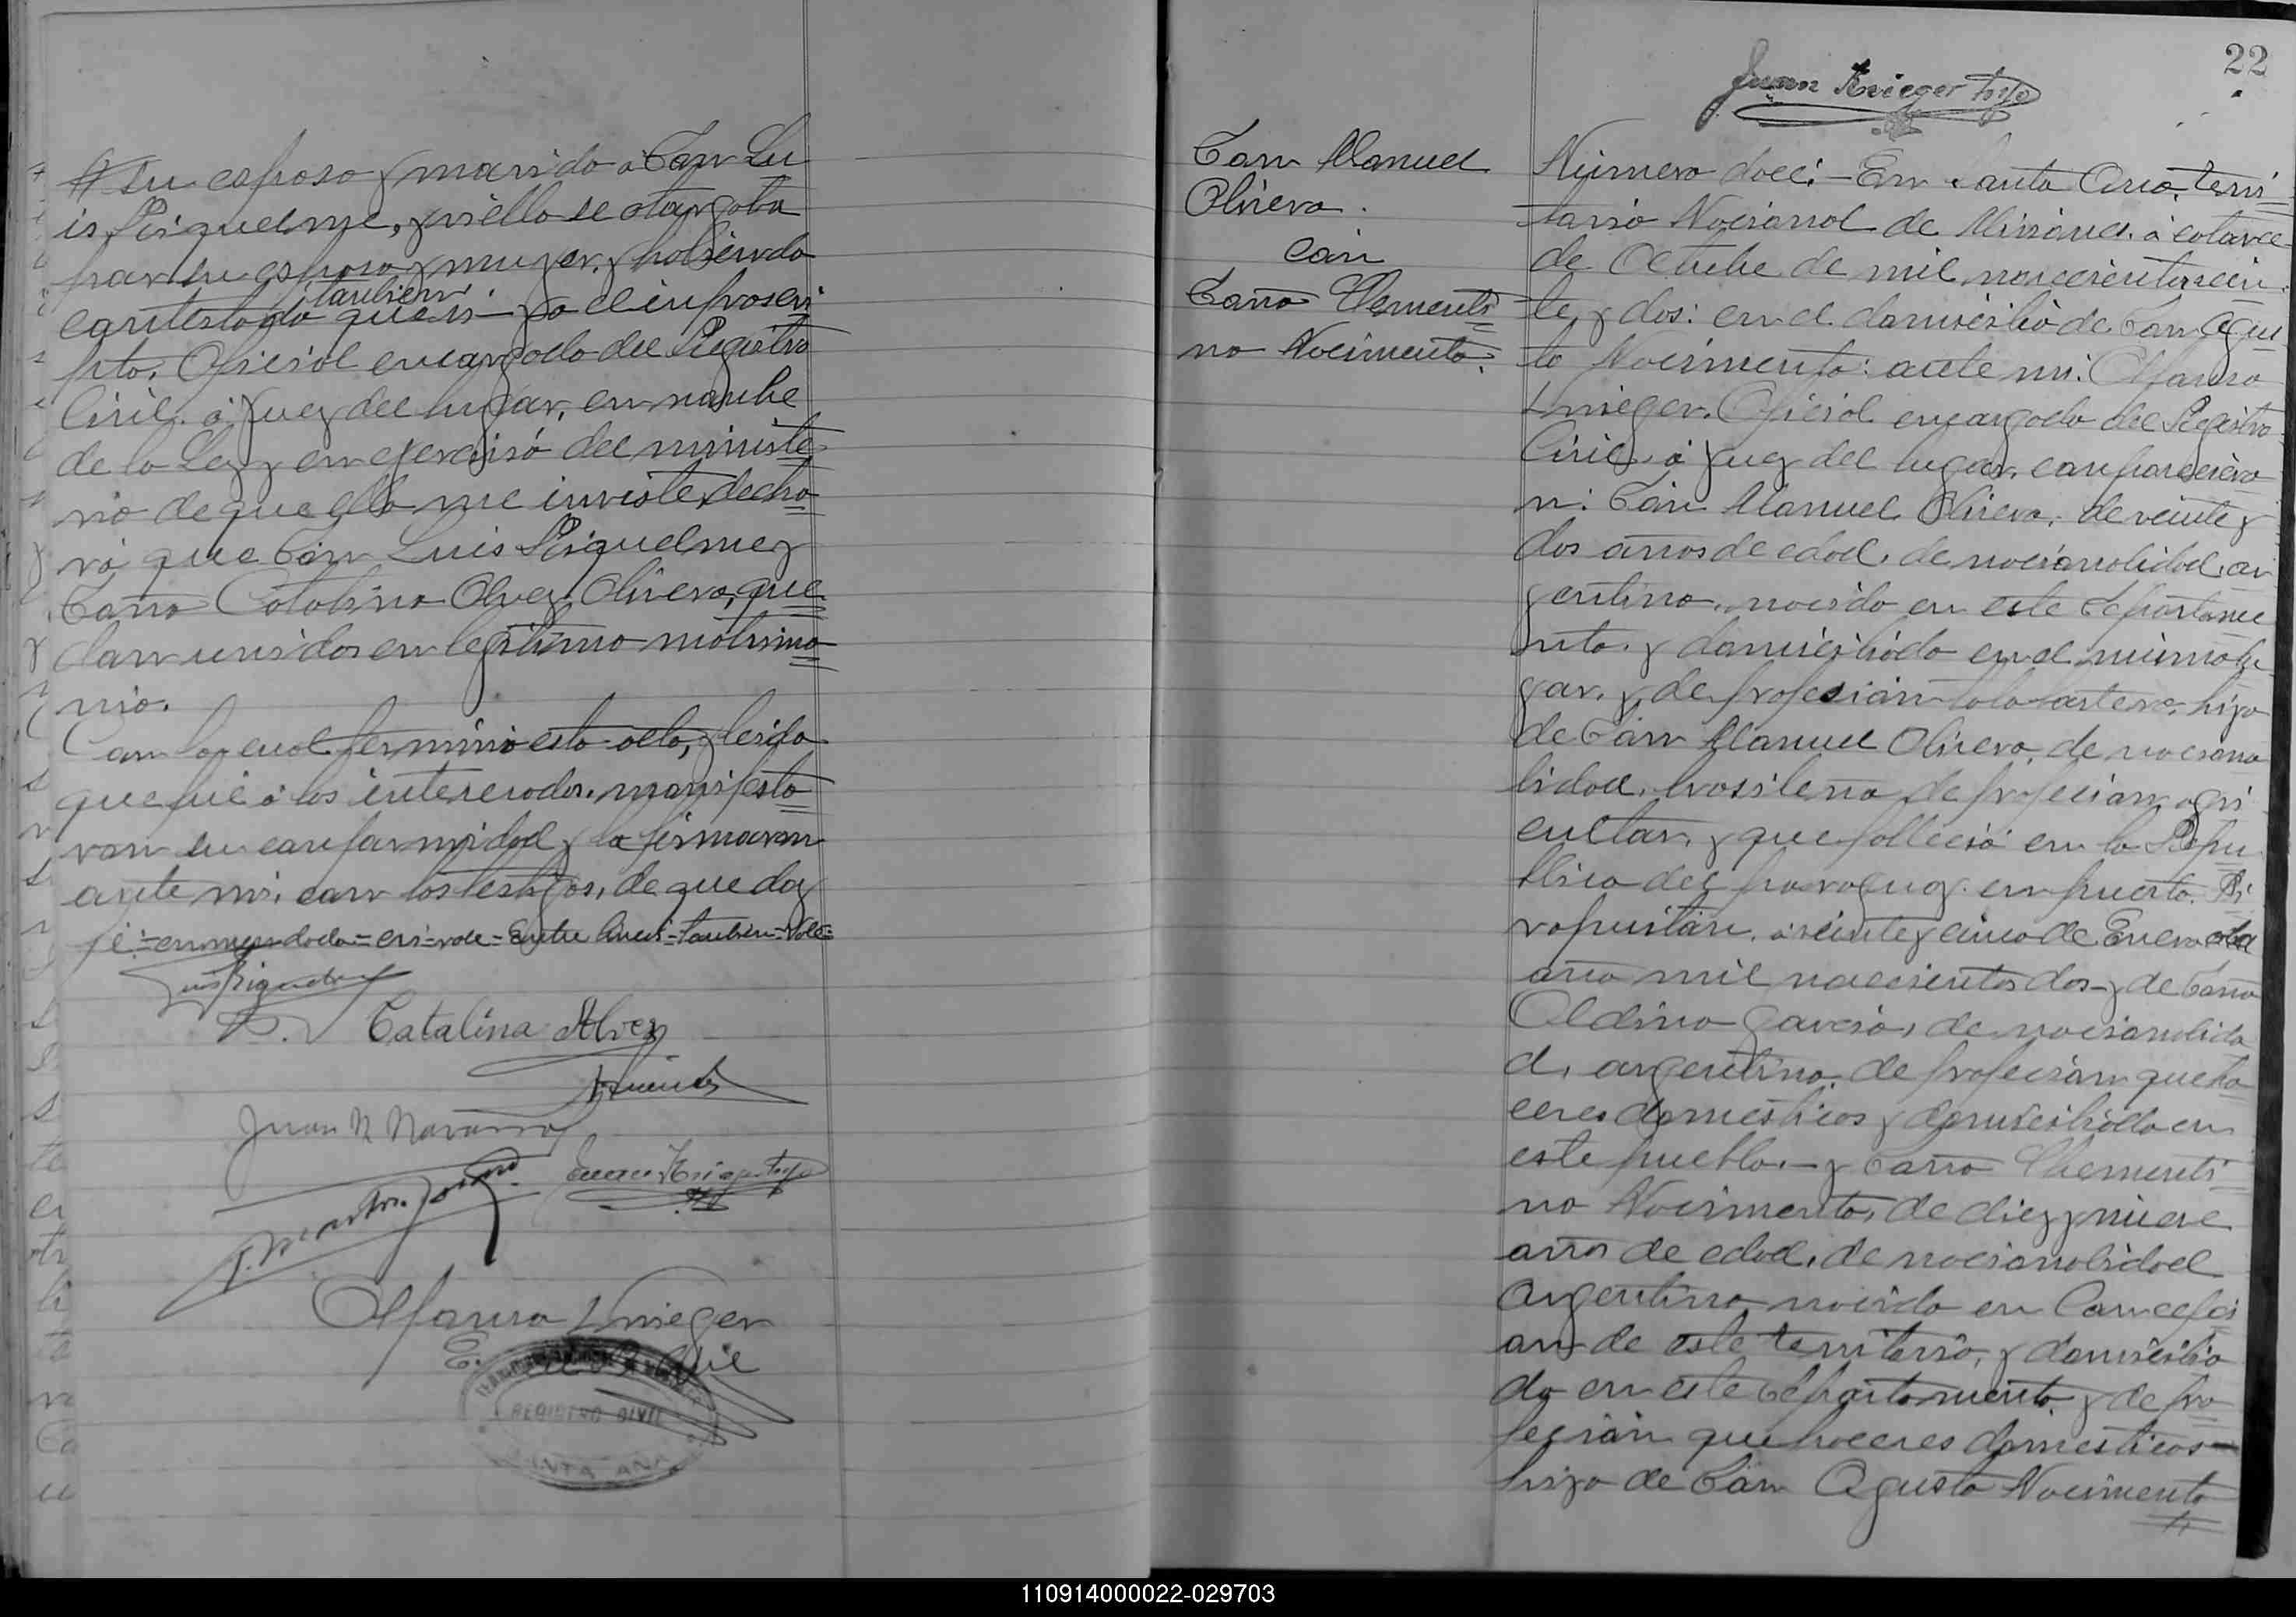 su esposo y marido a Don Lu
is Riquelme, y si ello se otorgaba
por su esposo y muger, y habiendo
contestado que si yo el infrascri
también
pto. Oficial encargado del Registro
Civil. á Juez del lugar, en nombe
de la Ley y en ejercisió del ministe
rio de que ella me inviste, decla
ró que Don Luis Riquelme y
Doña Catalina Alvez Olivera, que
dan unidos en legitimo matrimo
nio.
Con lo cual termino esta acta, y leida
que fué á los interesados. manifesta
ron su conformidad y la firmaron
ante mi, con los testigos, de que doy
fé.=enmendado=eri=vale=Entre lineas=tanbien=Vale=
Luis Riquelme
Catalina Alvez
Juan N Navarro
Juan Krieger hijo
Alfonso Krieger
REGISTRO CIVIL
SANTA ANA
22
Juan Krieger hijo
Don Manuel
Olivera.
con
Doña Clementi
na Nacimento.
Número doce:—En Santa Ana, terri
torio Nacional de Misiones. á catorce
de Octube de mil novecientos vein
te y dos: en el domicilio de Don Agus
to Nacimento: ante mi. Alfonso
Krieger. Oficial encargado del Registro
Civil. á Juez del lugar, comparecièro
n: Don Manuel Olivera. de veinte y
dos años de edad. de nacionalidad, ar
gentino. nacido en este Departame
nto. y domiciliado en el mismo lu
gar. y de profesión
hijo
de Don Manuel Olivera, de naciona
lidad. brasileña de profesion agri
cultor. y que fallecio en la Repu
blica del Paraguay. en puerto.
á veinte y cinco de Enero del
año mil novecientos dos—y de Doña
Aldina Garcia, de nacionalida
d. argentina. de profesion queha
ceres domesticos y domiciliada en
este pueblo.—y Doña Clementi
na Nacimento, de diez y nueve
años de edad, de nacionalidad
Argentina, nacida en Concepci
on de este territorio, y domicilia
da en este Departamento. y de pro
fecion quehaceres domesticos—
hija de Don Agusto Nacimento
110914000022-029703